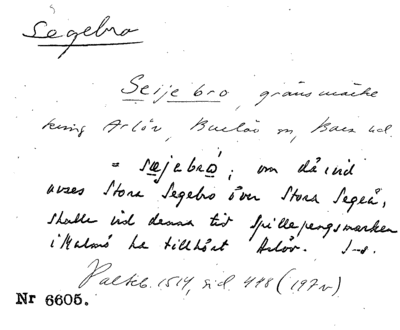 Segebro
Seijebro, gränsmärke
kring Arlöv, Burlöv sn, Bara hd.
= sæjebro; om då vid
avses Stora Segebro över Stora Segeå,
skulle vid denna tid Spillepengsmarken
i Malmö ha tillhört Arlöv. I-d.
Palteb. 1514, sid 448 (197v)
Nr 6605.